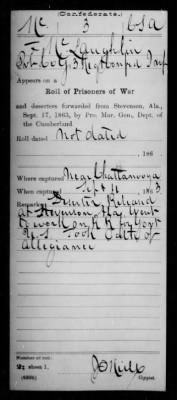 (Confederate.)
Mc 3 CSA
F. McLaughlin
Pvt Co G 3 Reg Confed Inf
Appears on a
Roll of Prisoners of War
and deserters forwarded from Stevenson, Ala.,
Sept. 17, 1863, by Pro. Mar. Gen., Dept. of
the Cumberland.
Roll dated Not dated
, 186
Where captured Near Chattanooga
When captured Sept 11, 1863
Remarks: Deserter Released
at Stevenson Ala, Went
to work on R R for Govt
U.S. Took Oath of
Allegiance
Number of roll:
2; sheet 1.
(639b)
Copyist.